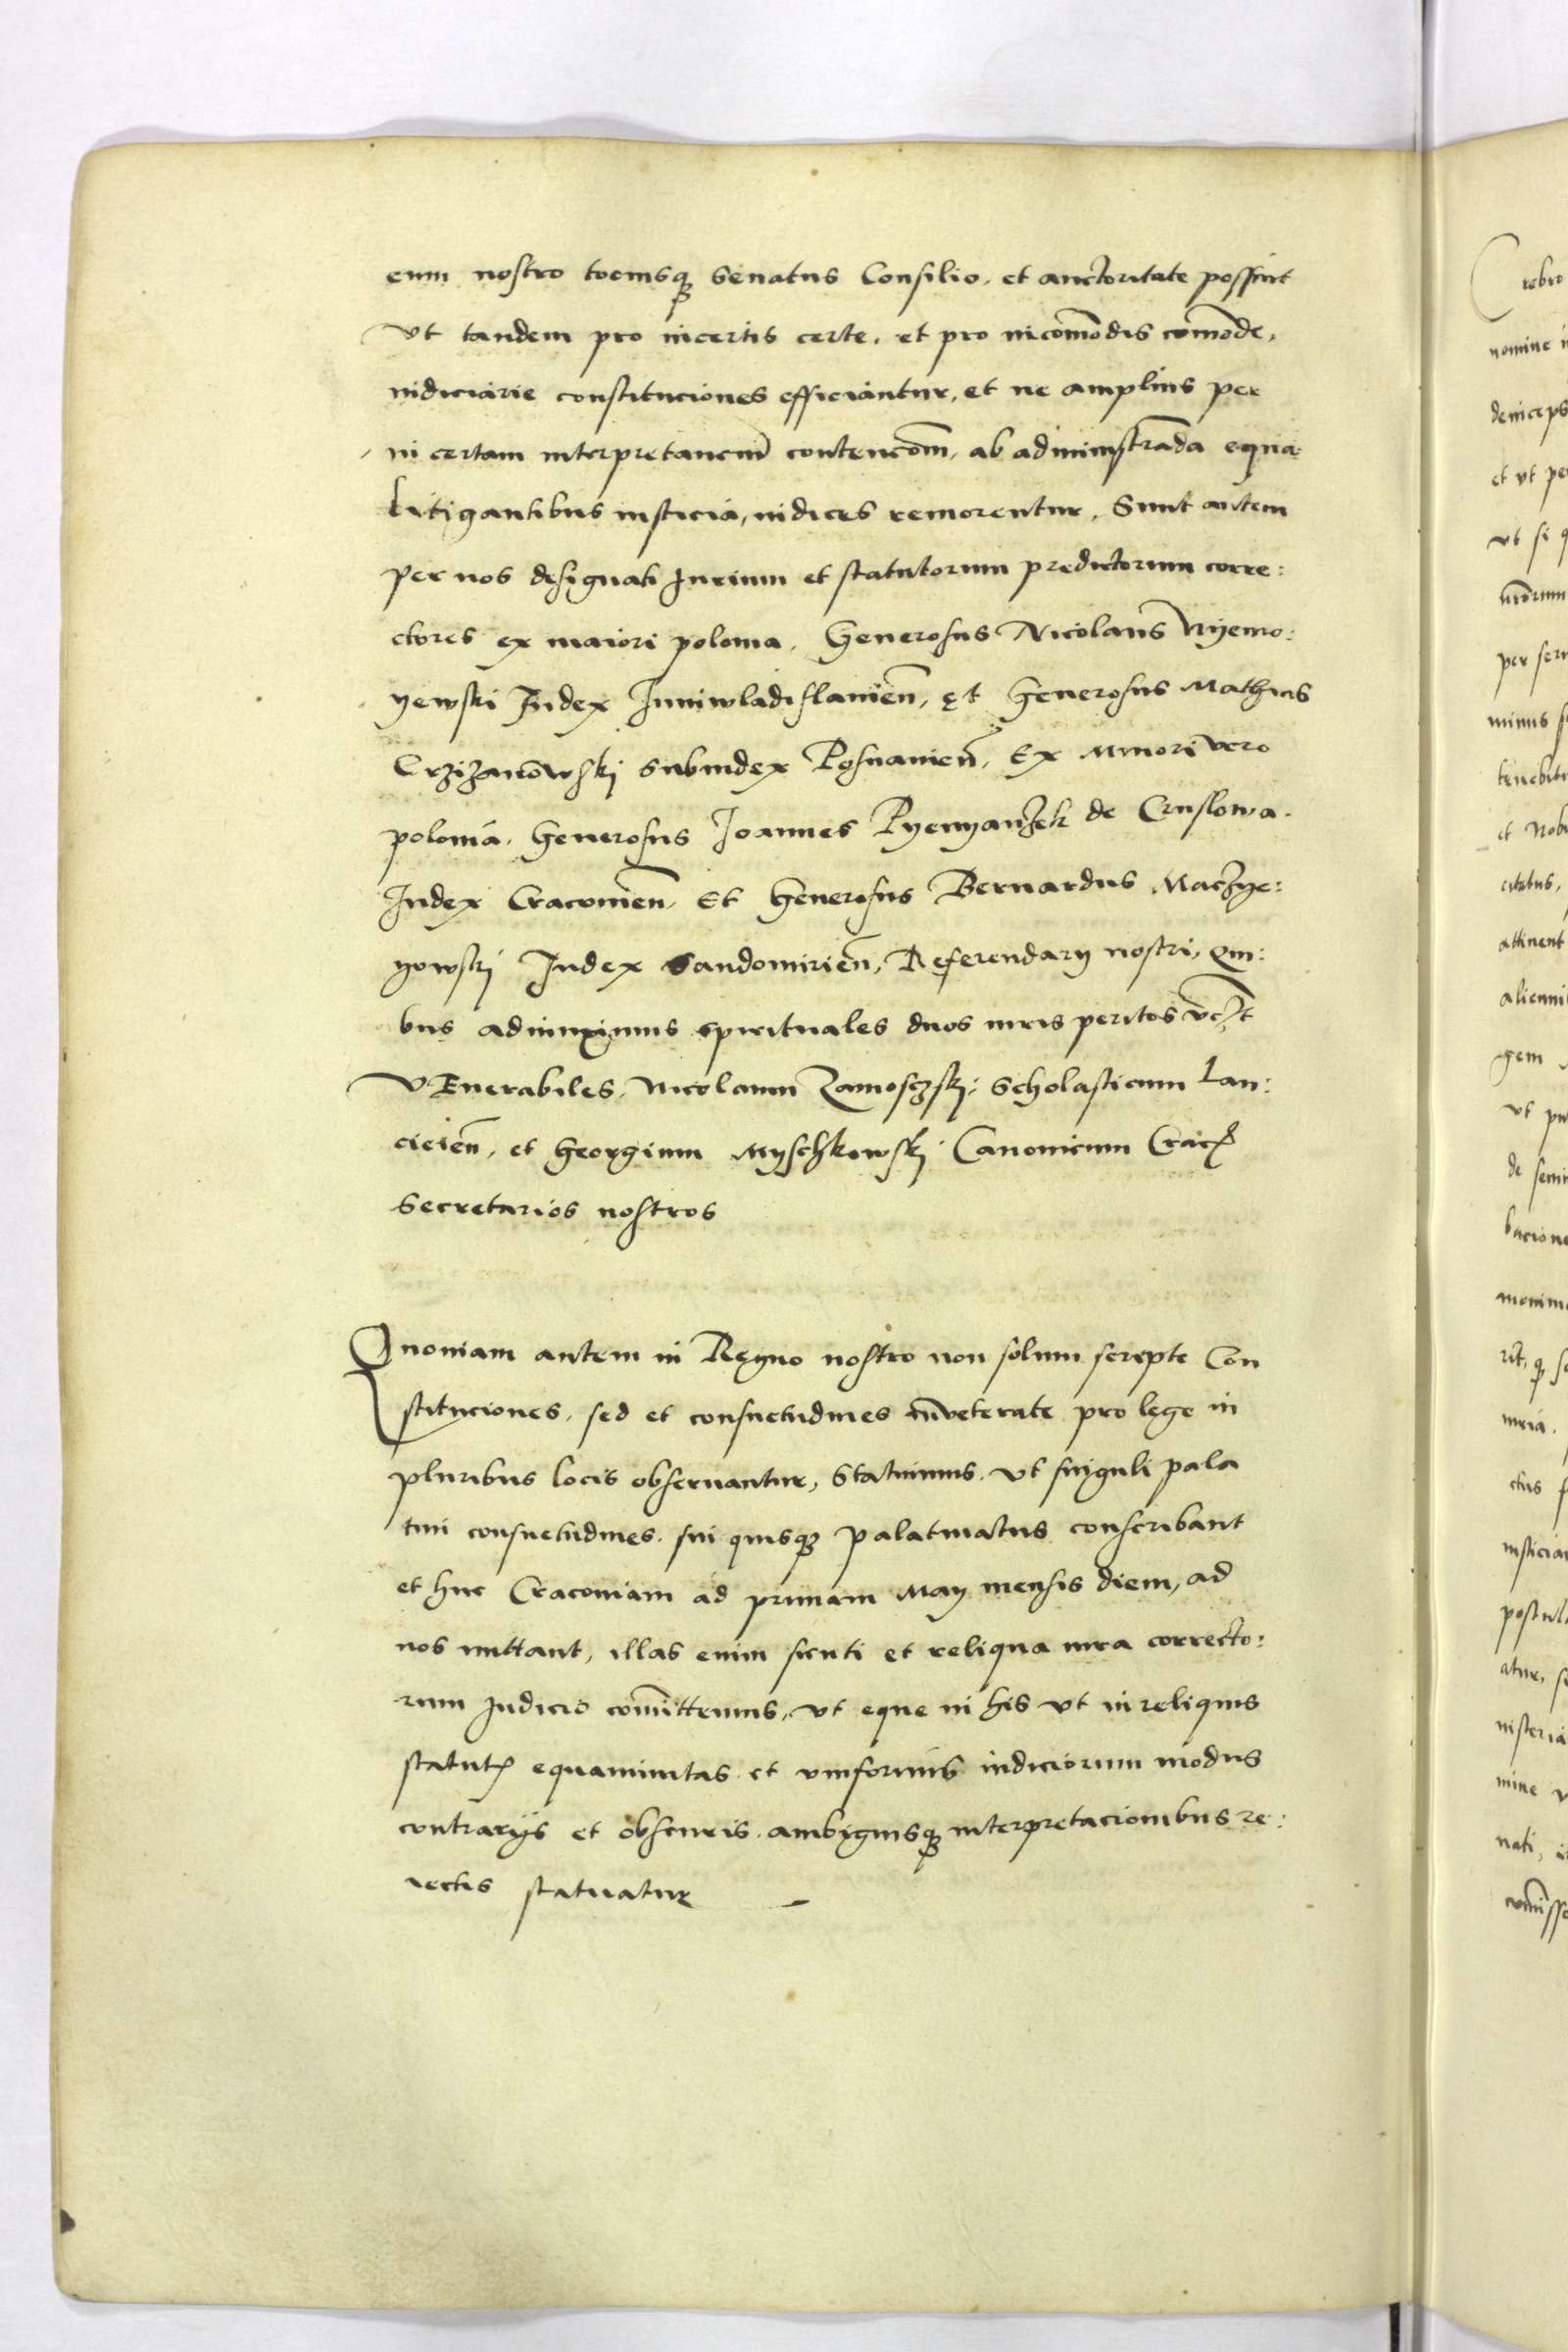 cum nostro tociusq Senatus Consilio, et auctoritate possint
Vt tandem pro incertis certe, et pro incomodis comode,
iudiciarie constituciones efficiantur, et ne amplius per
in certam interpretancium contencom, ab administranda equa
Litigantibus insticia, iudices remorentur, Sunt autem
per nos designati Iurium et statutorum predictorum corre:
ctores ex maiori polonia, Generosus Nicolaus Nyemo:
yewski Iudex Iuniwladislauien, et Generosus Mathias
Crzizanowskj Subiudex Posnanien, Ex Minori vero
polonia, Generosus Ioannes Pyenyanzek de Cruslowa.
Iudex Cracouien, Et Generosus Bernardus Maczye:
yowskj Iudex Sandomirien, Referendarij nostri, Qui:
bus adiunximus spirituales duos iuris peritos vczt
Venerabiles, Nicolaum Zamoschskj: Scholasticum Lan:
cicien, et Georgium Myschkowskj Canonicum Crac
Secretarios nostros
Quoniam autem in Regno nostro non solum scripte Con
stituciones, sed et consuetudines inveterate pro lege in
pluribus locis obseruantur, Statuimus, vt singuli pala
tini consuetudines, sui quisq palatinatus conscribant
et huc Cracouiam ad primam May mensis diem, ad
nos mittant, illas enim sicuti et reliqua iura correcto:
rum Iudicio comittemus, vt eque in his vt in reliquis
statut equanimitas et vniformis iudiciorum modus
contrarijs et obscuris, ambiguisq interpretacionibus re:
iectis statuatur